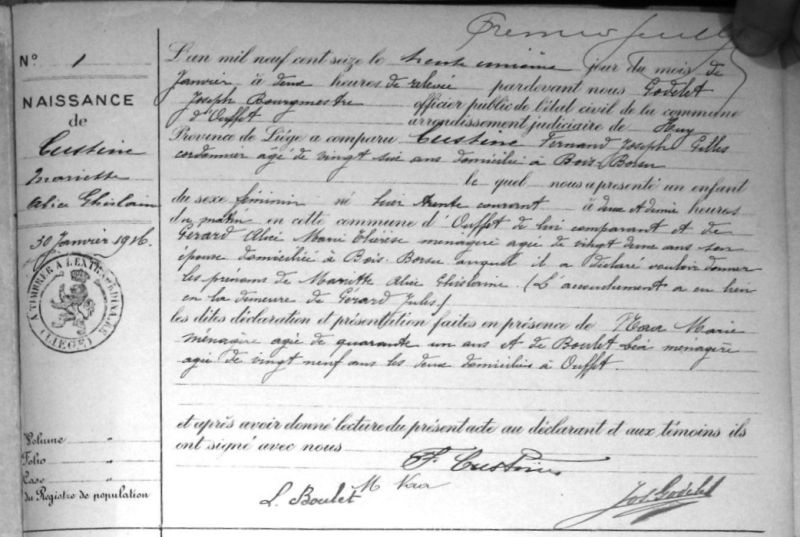 Premier feuillet
N° 1
NAISSANCE
de
Custine
Mariette
Alice Ghislaine
30 Janvier 1916.
A TIMBRER A L'EXTRAORDINAIRE
(LIEGE)
Volume "
Folio "
Case "
du Registre de population
L'an mil neuf cent seize le trente unième jour du mois de
Janvier à deux heures de relevée pardevant nous Godelet
Joseph Bourgmestre officier public de l'état civil de la commune
d'Ouffet arrondissement judiciaire de Huy
Province de Liége a comparu Custine Fernand Joseph Gilles
cordonnier âgé de vingt six ans domicilié à Bois-Borsu
le quel nous a présenté un enfant
du sexe féminin né hier trente courant à deux et demie heures
du matin en cette commune d'Ouffet de lui comparant et de
Gérard Alice Marie Thérèse ménagère agée de vingt deux ans son
épouse domiciliée à Bois-Borsu auquel il a déclaré vouloir donner
les prénoms de Mariette Alice Ghislaine. (L'accouchement a eu lieu
en la demeure de Gérard Jules)
les dites déclaration et présentation faites en présence de Naa Marie
ménagère agée de quarante un ans et de Boulet Léa ménagère
agée de vingt neuf ans les deux domiciliés à Ouffet.
et après avoir donné lecture du présent acte au déclarant et aux témoins ils
ont signé avec nous
F. Custine
L. Boulet M Naa Jos. Godelet